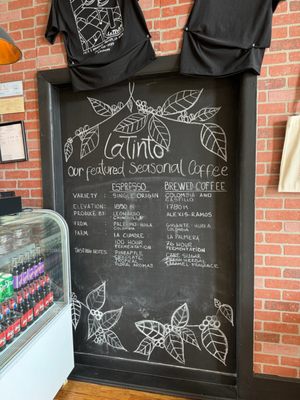 Latinto
Our Featured Seasonal Coffee
ESPRESSO BREWED COFFEE
VARIETY: SINGLE ORIGIN COLOMBIA AND CASTILLO
ELEVATION: 1850 M 1780 M
PRODUCE BY: LEONARDO ALEXIS RAMOS
FROM PALERMO HUILA COLOMBIA GIGANTE HUILA COLOMBIA
FARM LA CUMBRE LA PALMERA
100 HOUR FERMENTATION 76 HOUR FERMENTATION
TASTING NOTES PINEAPPLE CANE SUGAR
CHOCOLATE
TROPICAL
FLORAL AROMAS CARAMEL FRAGRANCE